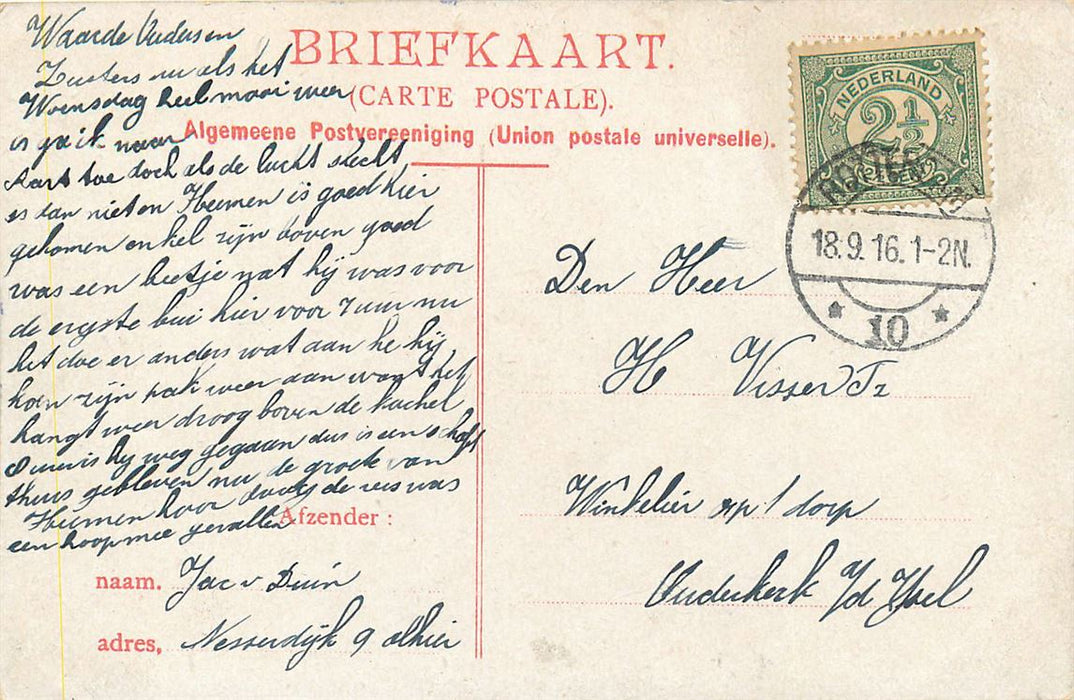 BRIEFKAART.
(CARTE POSTALE).
Algemeene Postvereeniging (Union postale universelle).
Waarde Ouders en
Zusters nu als het
Woensdag heel mooi weer
is ga ik naar
Aart toe doch als de lucht slecht
is dan niet en Heimen is goed hier
gekomen enkel zijn boven goed
was een beetje nat hij was voor
de ergste bui hier voor 7 uur nu
het doe er anders wat aan he hij
kon zijn pak weer aan want het
hangt weer droog boven de kachel
8 uur is hij weg gegaan dus is een schoft
thuis gebleven nu de groete van
Heimen hoor de reis was
een hoop mee gevallen
Afzender :
naam. Jac v Duin
adres, Nesserdijk 9 alhier
NEDERLAND
2½
CENT
ROTTERDAM
18.9.16.1-2N.
10
Den Heer
H Visser Tz
Winkelier op 't dorp
Ouderkerk a/d IJsel